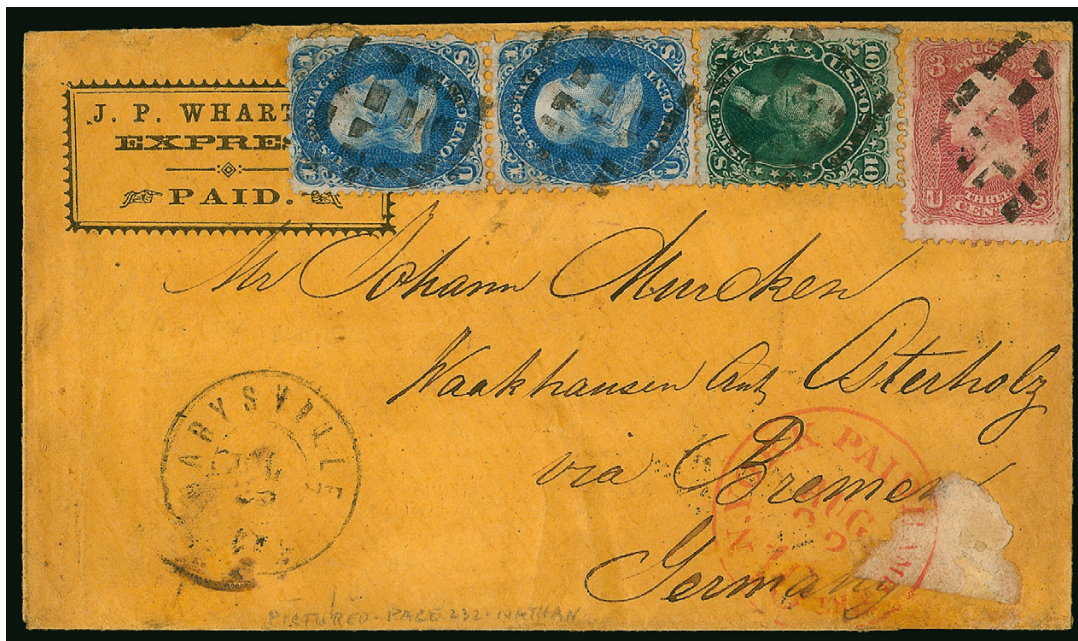 J. P. WHART
EXPRES
PAID.
U.S. POSTAGE
ONE CENT
U.S. POSTAGE
ONE CENT
10 U.S. POSTAGE 10
TEN CENTS
3 U.S. POSTAGE
THREE CENTS
Mr Johann Murcken
Waakhausen Amt Osterholz
via Bremen
Germany
MARYSVILLE
N. YORK PAID
AUG
PICTURED - PAGE 232 - NATHAN